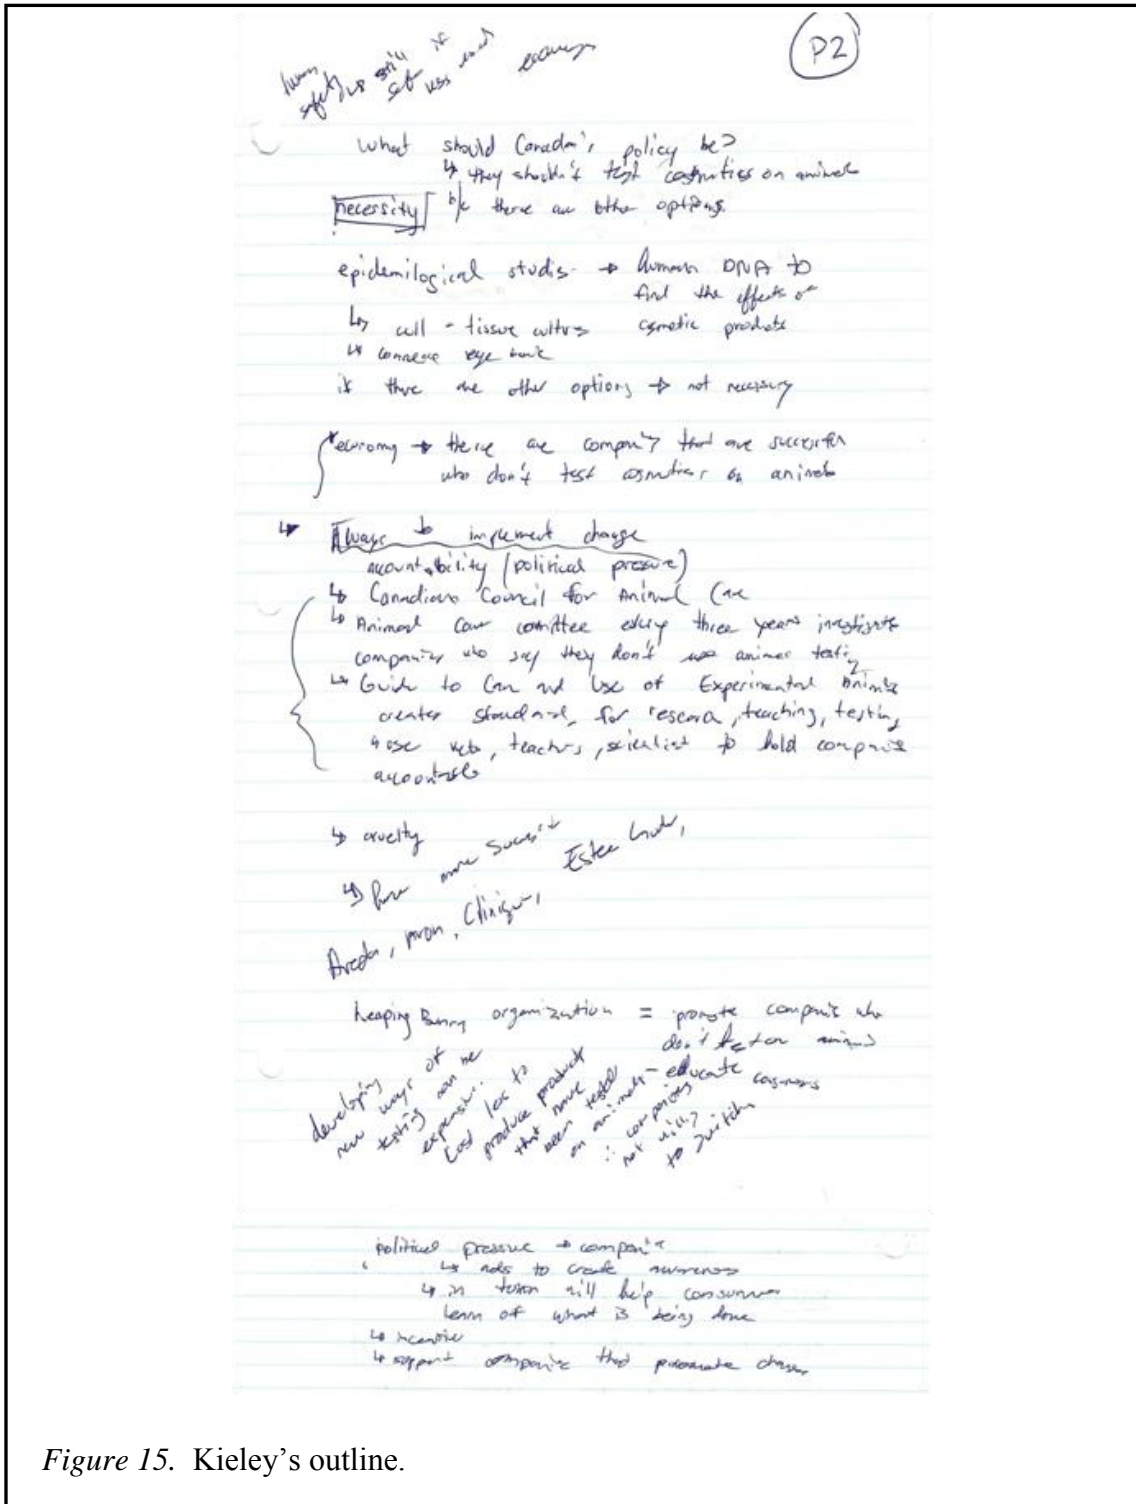 P2
human safety
still if
less
What should Canada's policy be?
↳ they shouldn't test cosmetics on animals
necessity b/c there are other options.
epidemilogical studies → human DNA to
find the effects of
↳ cell - tissue cultures cosmetic products
↳ eye bank
if there are other options → not necessary
economy → there are company's that are successful
who don't test cosmetics on animals
↳ Always to implement change
accountability (political pressure)
↳ Canadian Council for Animal Care
↳ Animal Care comittee every three years investigate
companies who say they don't use animal testing
↳ Guide to Care and Use of Experimental Animals
creates standards for research, teaching, testing
↳ use vets, teachers, scientist to hold companies
accountable
↳ cruelty
↳ have more success
Aveda, Avon, Clinique, Estee Lauder,
Leaping Bunny organization = promote companies who
don't test on animals
- educate
developing
new ways of
testing can be
expensive.
Cost less to
produce products
that have
been tested
on animals
∴ companies
not willing
to switch
political pressure → companies
↳ ads to create awareness
↳ in turn will help consumer
learn of what is being done
↳ incentive
↳ support companies that promote change
Figure 15. Kieley's outline.